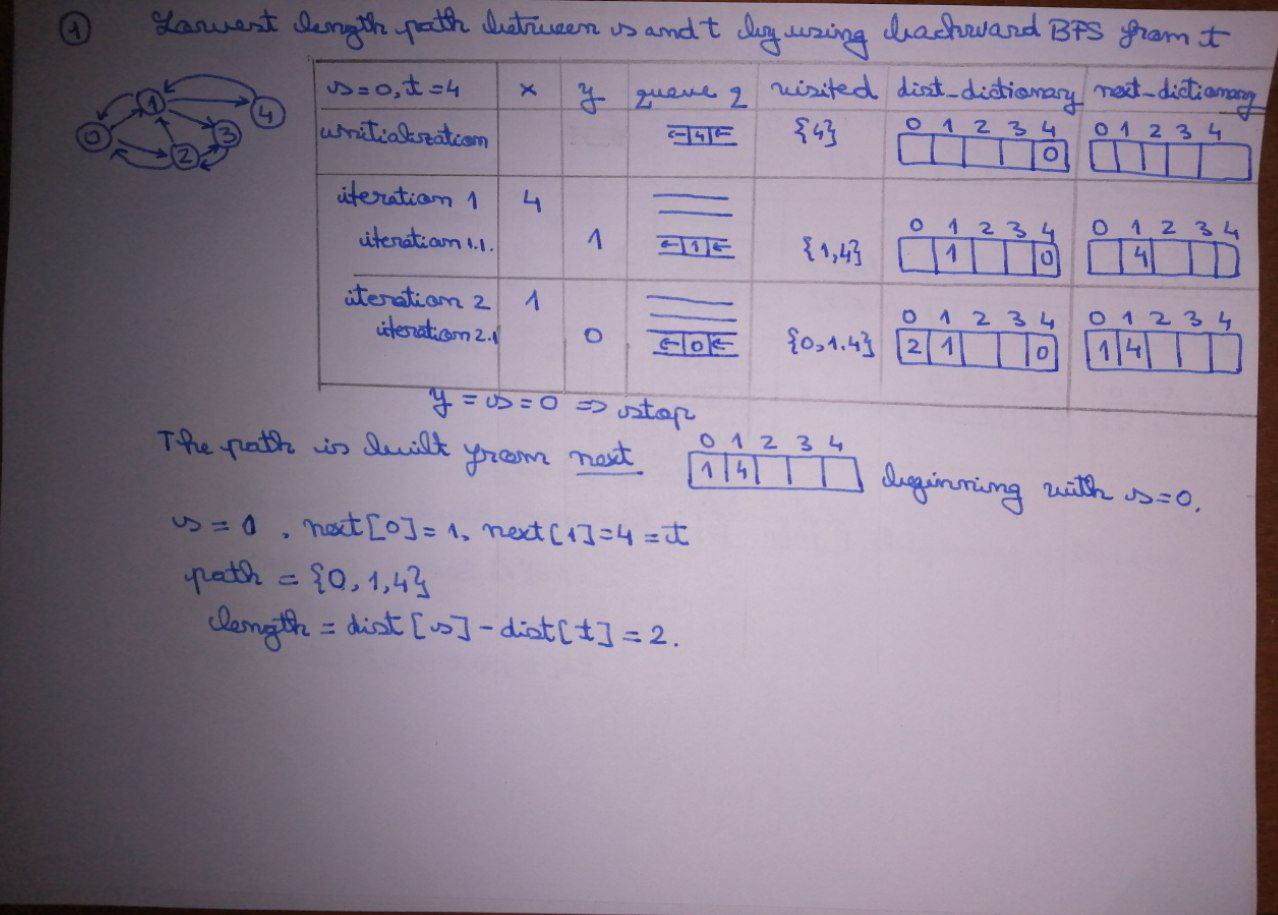 1 Lowest length path between s and t by using backward BFS from t
0 1 2 3 4
s=0, t=4 x y queue q visited dist_dictionary next_dictionary
initialization ←4← {4} 0 1 2 3 4 0 0 1 2 3 4
iteration 1 4
iteration 1.1. 1 ←1← {1,4} 0 1 2 3 4 1 0 0 1 2 3 4 4
iteration 2 1
iteration 2.1 0 ←0← {0,1.4} 0 1 2 3 4 2 1 0 0 1 2 3 4 1 4
y = s = 0 => stop
The path is built from next 0 1 2 3 4 1 4 beginning with s=0.
s = 0, next[0]=1, next[1]=4=t
path = {0,1,4}
length = dist[s]-dist[t]=2.